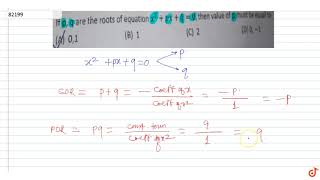 82199
If p, q are the roots of equation x² + px + q = 0, then value of p must be equal to
(A) 0,1 (B) 1 (C) 2 (D) 0, −1
x² + px + q = 0 → p
→ q
SOR = p + q = −coeff of x / coeff of x² = −p / 1 = −p
POR = pq = const term / coeff of x² = q / 1 = q